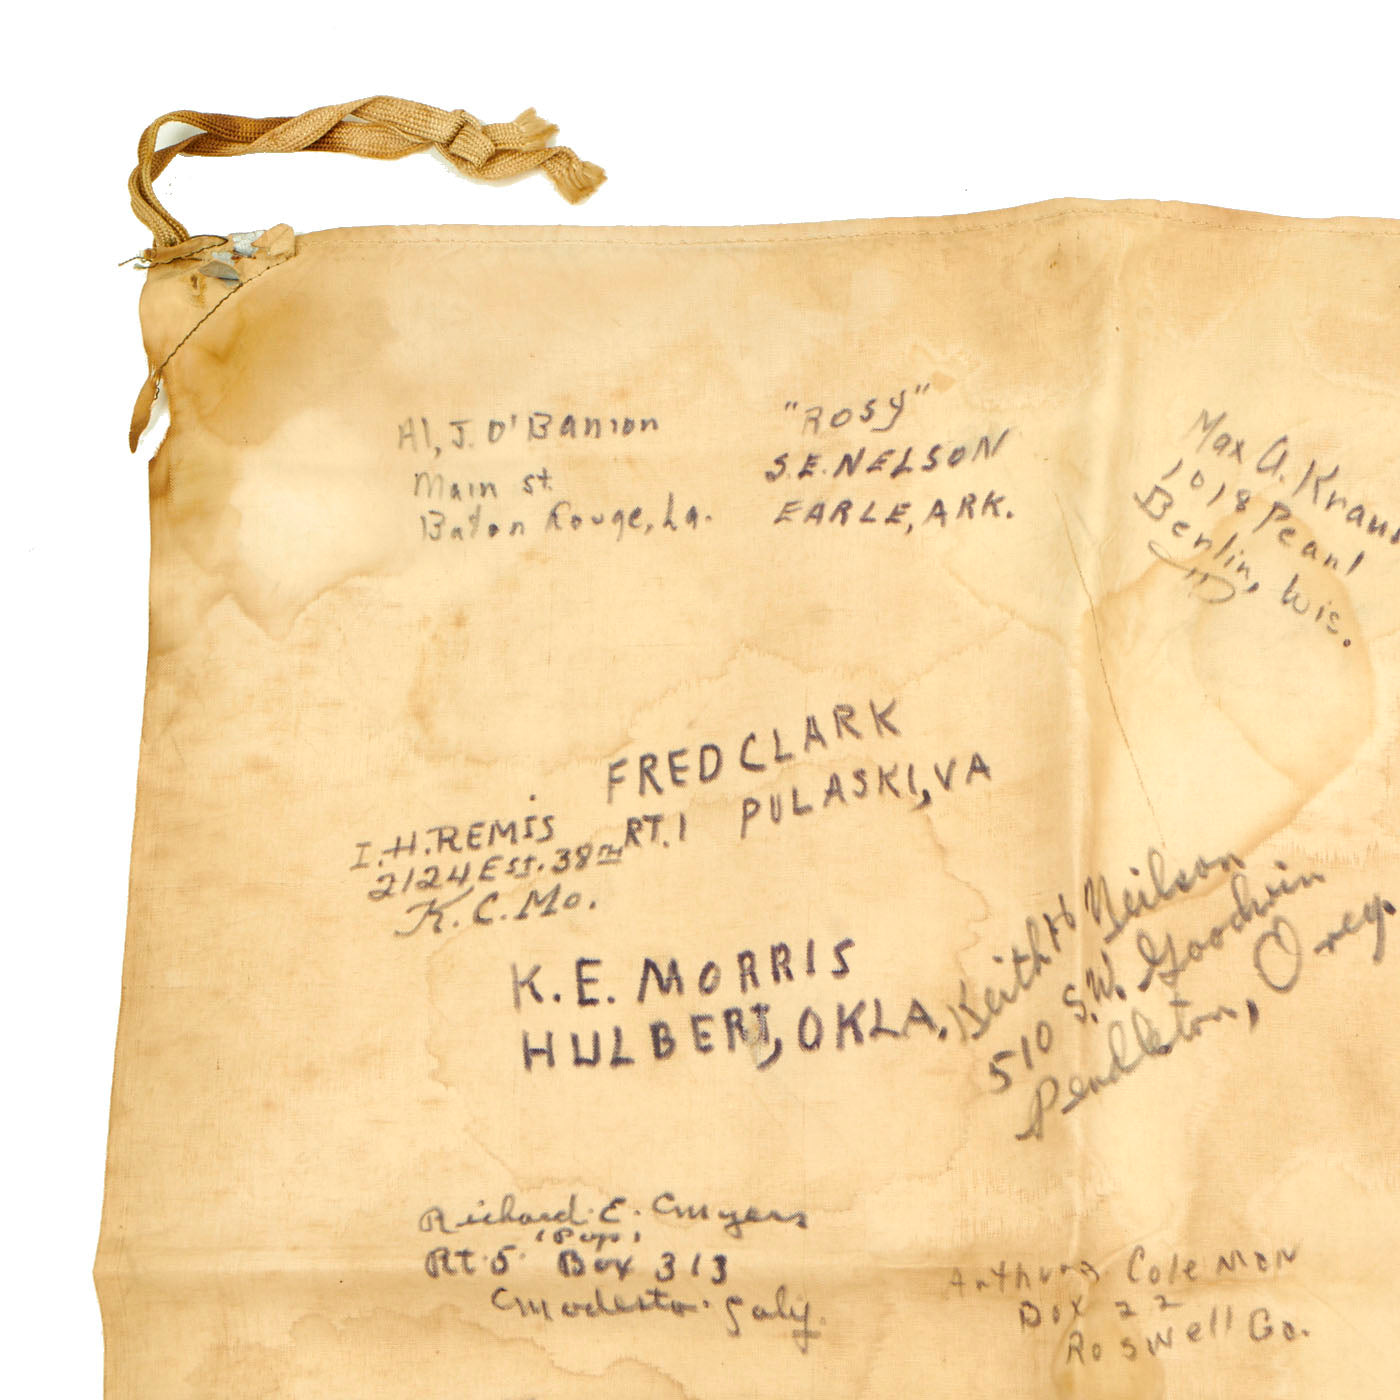 Al, J. O'Banion
Main st.
Baton Rouge, La.
"ROSY"
S.E. NELSON
EARLE, ARK.
Max A. Krau
1018 Pearl
Berlin, Wis.
FRED CLARK
RT. 1 PULASKI, VA
I. H. REMIS
2124 Est. 38TH
K. C. Mo.
K. E. MORRIS
HULBERT, OKLA.
Keith H Neilson
510 S.W. Goodwin
Pendleton, Oreg.
Richard. E. Myers
(Pop)
Rt. 5. Box 313
Modesto. Calif.
Anthony Coleman
Box 22
Roswell Ga.